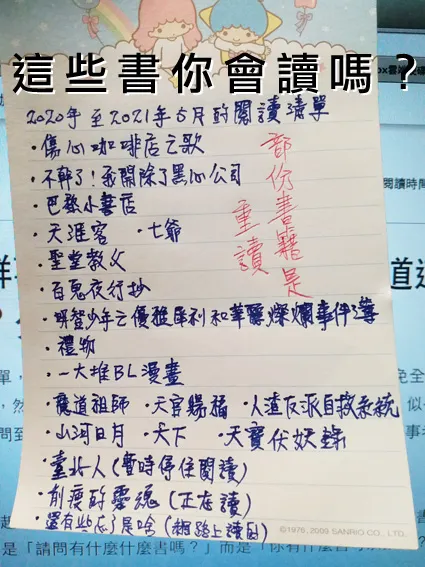 這些書你會讀嗎？
2020年至2021年5月的閱讀清單
・傷心咖啡店之歌
・不幹了！我開除了黑心公司
・巴黎小書店
・天涯客 ・七爺
・聖堂教父
・百鬼夜行抄
・明智少年之優雅犀利和華麗燦爛事件簿
・禮物
・一大堆BL漫畫
・魔道祖師 ・天官賜福 ・人渣反派自救系統
・山河日月 ・天下 ・天寶伏妖錄
・臺北人（暫時停住閱讀）
・削瘦的靈魂（正在讀）
・還有些忘了是啥（網路上讀的）
部份書籍是
重讀
©1976, 2009 SANRIO CO., LTD.
閱讀時間
道
單，
免全
，然
似
問到
事
是「請問有什麼什麼書嗎？」而是「你有什麼書